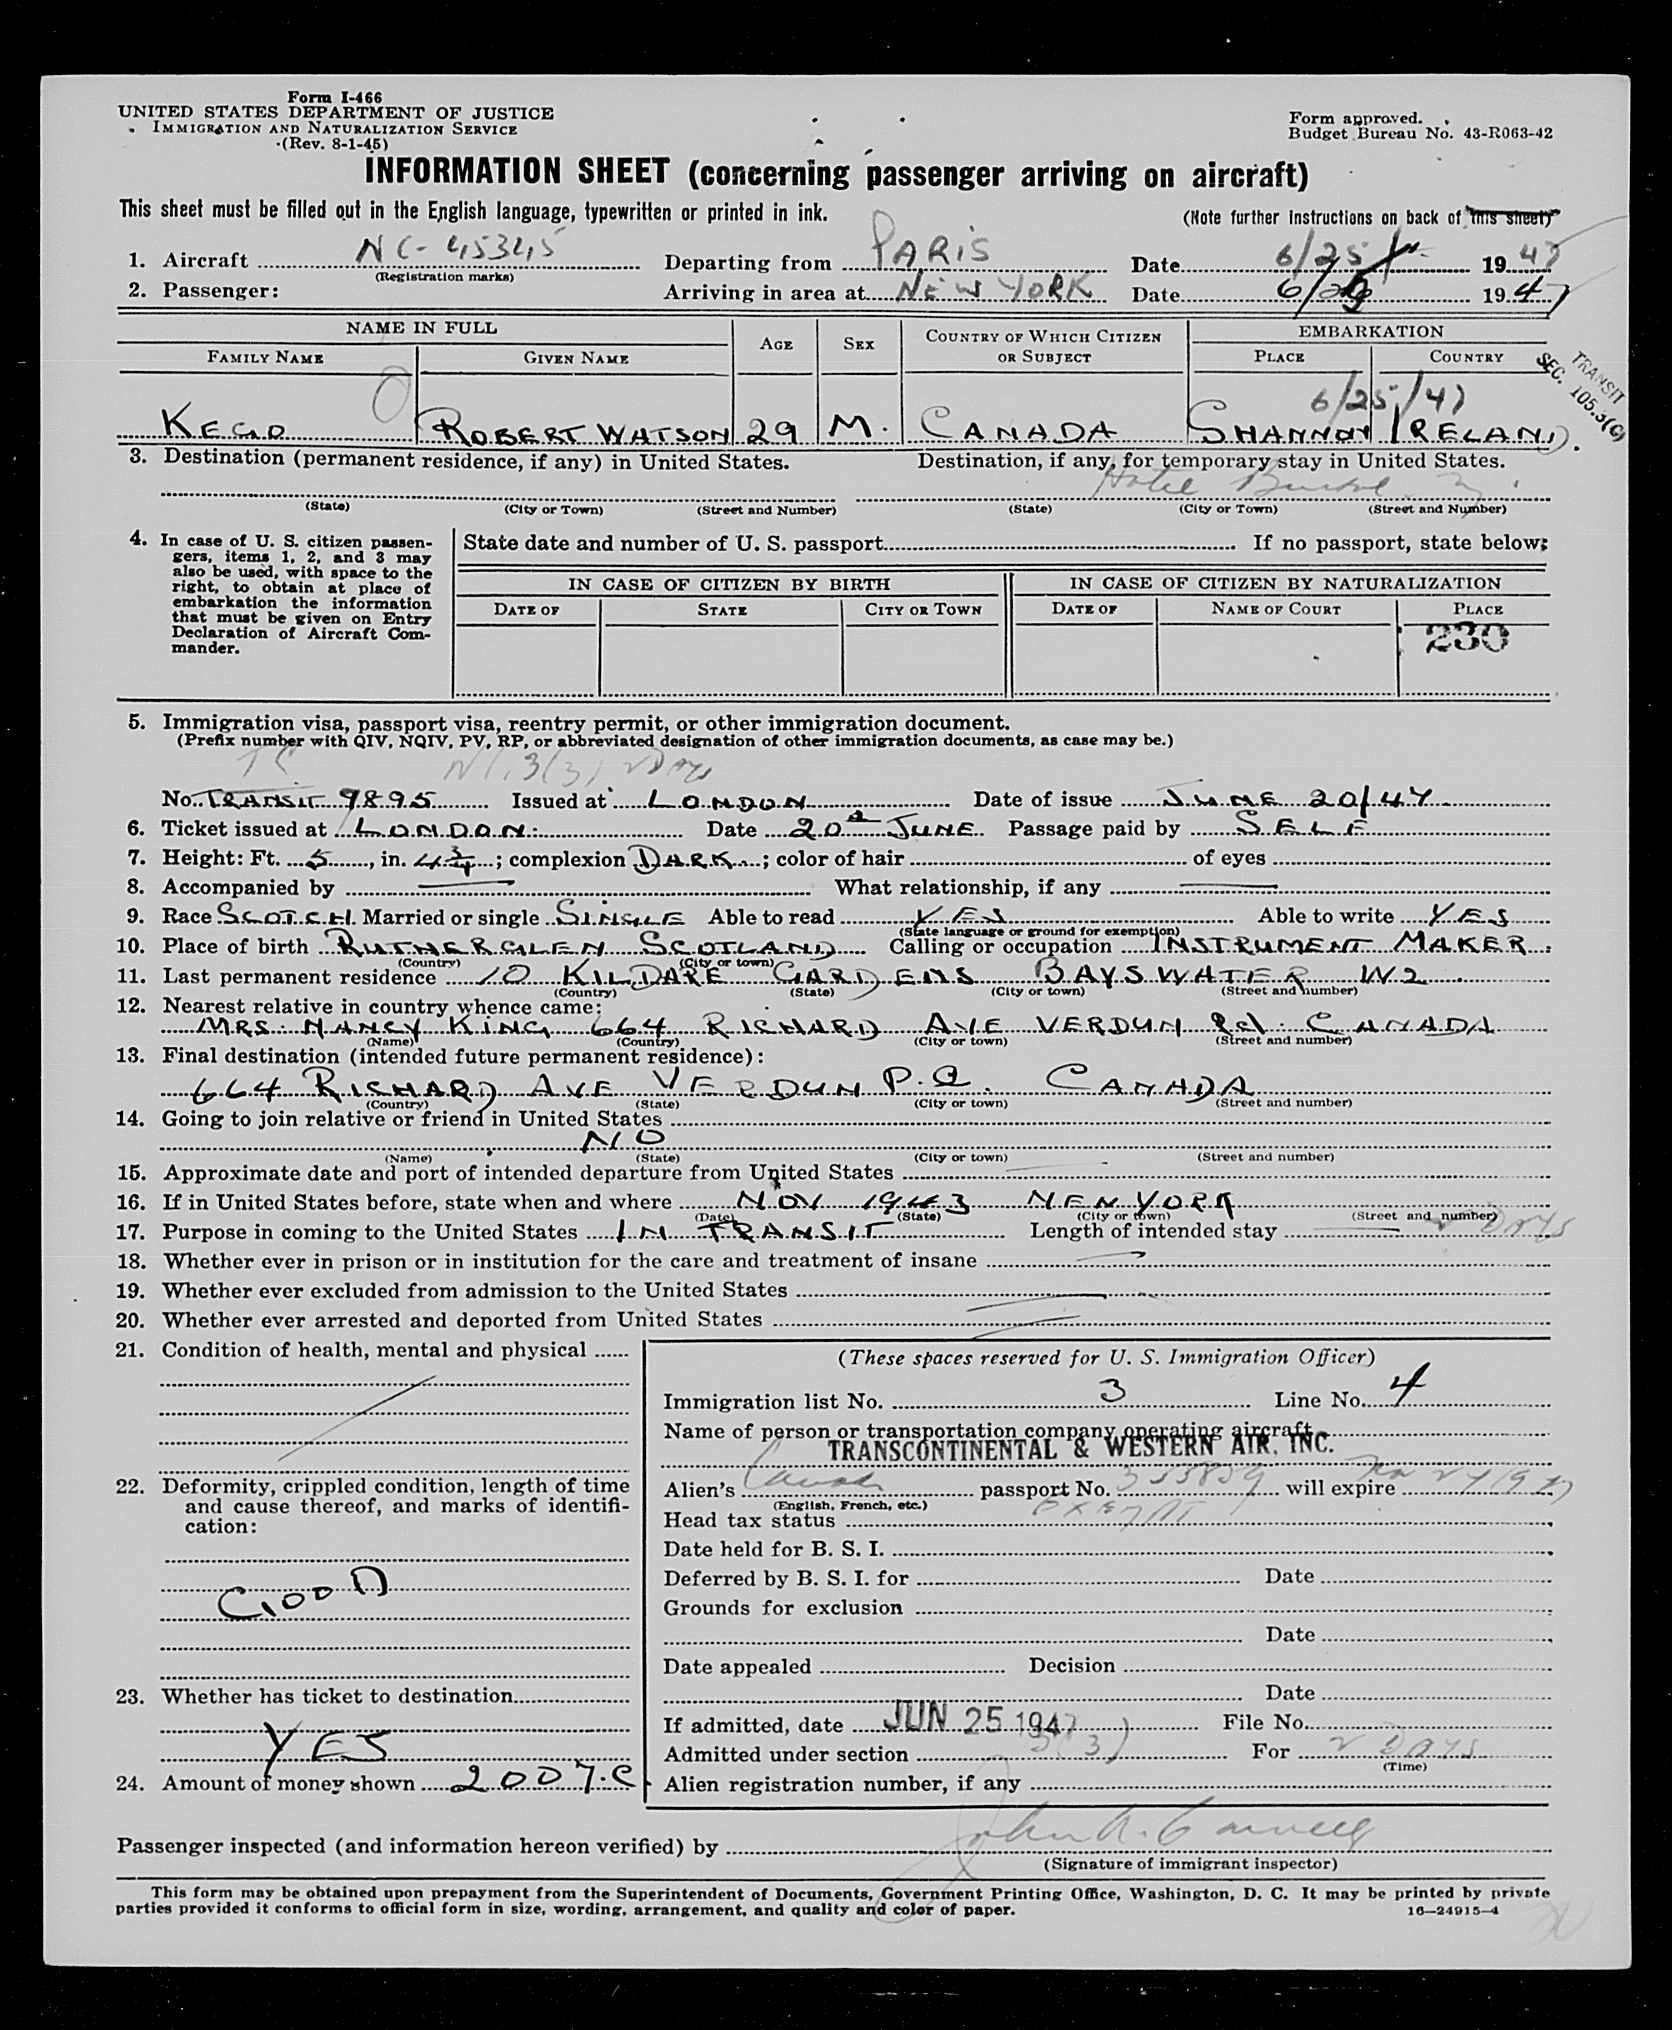 Form I-466
UNITED STATES DEPARTMENT OF JUSTICE
IMMIGRATION AND NATURALIZATION SERVICE
(Rev. 8-1-45)
Form approved.
Budget Bureau No. 43-R063-42
INFORMATION SHEET (concerning passenger arriving on aircraft)
This sheet must be filled out in the English language, typewritten or printed in ink. (Note further instructions on back of this sheet)
1. Aircraft NC-45345 Departing from PARIS Date 6/25 1947
(Registration marks)
2. Passenger: Arriving in area at NEW YORK Date 6/ 1947
NAME IN FULL AGE SEX COUNTRY OF WHICH CITIZEN OR SUBJECT EMBARKATION
FAMILY NAME GIVEN NAME PLACE COUNTRY
TRANSIT
SEC. 105.3(c)
6/25/47
KEGO ROBERT WATSON 29 M. CANADA SHANNON IRELAND.
3. Destination (permanent residence, if any) in United States. Destination, if any, for temporary stay in United States.
Hotel
(State) (City or Town) (Street and Number) (State) (City or Town) (Street and Number)
4. In case of U. S. citizen passengers, items 1, 2, and 3 may also be used, with space to the right, to obtain at place of embarkation the information that must be given on Entry Declaration of Aircraft Commander.
State date and number of U. S. passport If no passport, state below:
IN CASE OF CITIZEN BY BIRTH IN CASE OF CITIZEN BY NATURALIZATION
DATE OF STATE CITY OR TOWN DATE OF NAME OF COURT PLACE
230
5. Immigration visa, passport visa, reentry permit, or other immigration document.
(Prefix number with QIV, NQIV, PV, RP, or abbreviated designation of other immigration documents, as case may be.)
3(3) 2 Days
No. TRANSIT 9895 Issued at LONDON Date of issue JUNE 20/47
6. Ticket issued at LONDON. Date 20 JUNE. Passage paid by SELF
7. Height: Ft. 5, in. 4 3/4; complexion DARK; color of hair of eyes
8. Accompanied by What relationship, if any
9. Race SCOTCH. Married or single SINGLE Able to read YES Able to write YES
(State language or ground for exemption)
10. Place of birth RUTHERGLEN SCOTLAND Calling or occupation INSTRUMENT MAKER.
(Country) (City or town)
11. Last permanent residence 10 KILDARE GARDENS BAYSWATER W2.
(Country) (State) (City or town) (Street and number)
12. Nearest relative in country whence came:
MRS. NANCY KING 664 RICHARD AVE VERDUN CANADA
(Name) (Country) (City or town) (Street and number)
13. Final destination (intended future permanent residence):
664 RICHARD AVE VERDUN P.Q. CANADA
(Country) (State) (City or town) (Street and number)
14. Going to join relative or friend in United States
NO
(Name) (State) (City or town) (Street and number)
15. Approximate date and port of intended departure from United States
16. If in United States before, state when and where NOV 1943 NEW YORK
(Date) (State) (City or town) (Street and number)
17. Purpose in coming to the United States IN TRANSIT Length of intended stay 2 Days
18. Whether ever in prison or in institution for the care and treatment of insane
19. Whether ever excluded from admission to the United States
20. Whether ever arrested and deported from United States
21. Condition of health, mental and physical
22. Deformity, crippled condition, length of time and cause thereof, and marks of identification:
GOOD
23. Whether has ticket to destination
YES
24. Amount of money shown
(These spaces reserved for U. S. Immigration Officer)
Immigration list No. 3 Line No. 4
Name of person or transportation company operating aircraft
TRANSCONTINENTAL & WESTERN AIR. INC.
Alien's Canada passport No. 355859 will expire
(English, French, etc.)
Head tax status EXEMPT
Date held for B. S. I.
Deferred by B. S. I. for Date
Grounds for exclusion
Date
Date appealed Decision
Date
If admitted, date JUN 25 1947 File No.
Admitted under section 3(3) For 2 Days
(Time)
Alien registration number, if any
Passenger inspected (and information hereon verified) by John
(Signature of immigrant inspector)
This form may be obtained upon prepayment from the Superintendent of Documents, Government Printing Office, Washington, D. C. It may be printed by private
parties provided it conforms to official form in size, wording, arrangement, and quality and color of paper.
16—24915-4